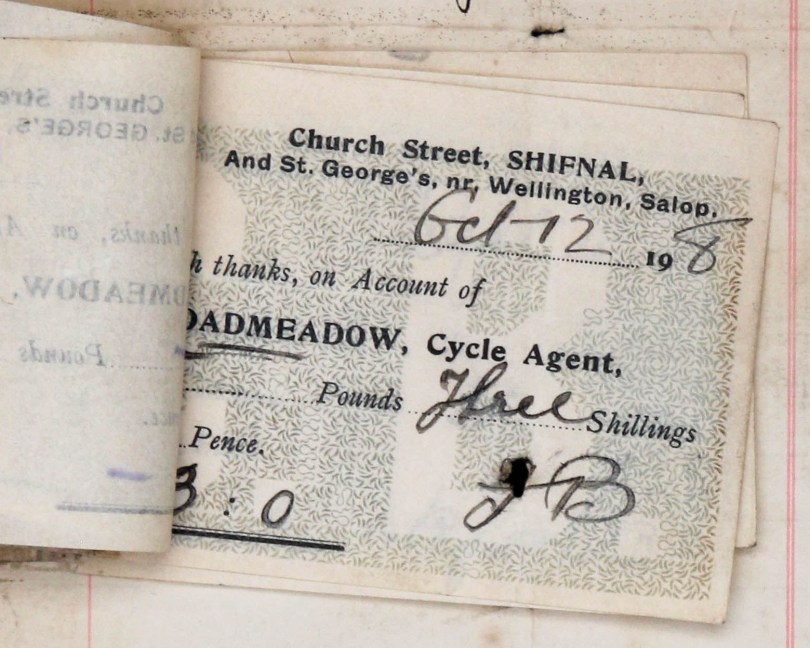 Church Street, SHIFNAL,
And St. George's, nr. Wellington, Salop.
Oct 12 198
h thanks, on Account of
OADMEADOW, Cycle Agent,
Pounds Three Shillings
Pence.
3 : 0
J B
Church Stre
St. GEORGE'S,
thanks, on A
DMEADOW,
Pounds